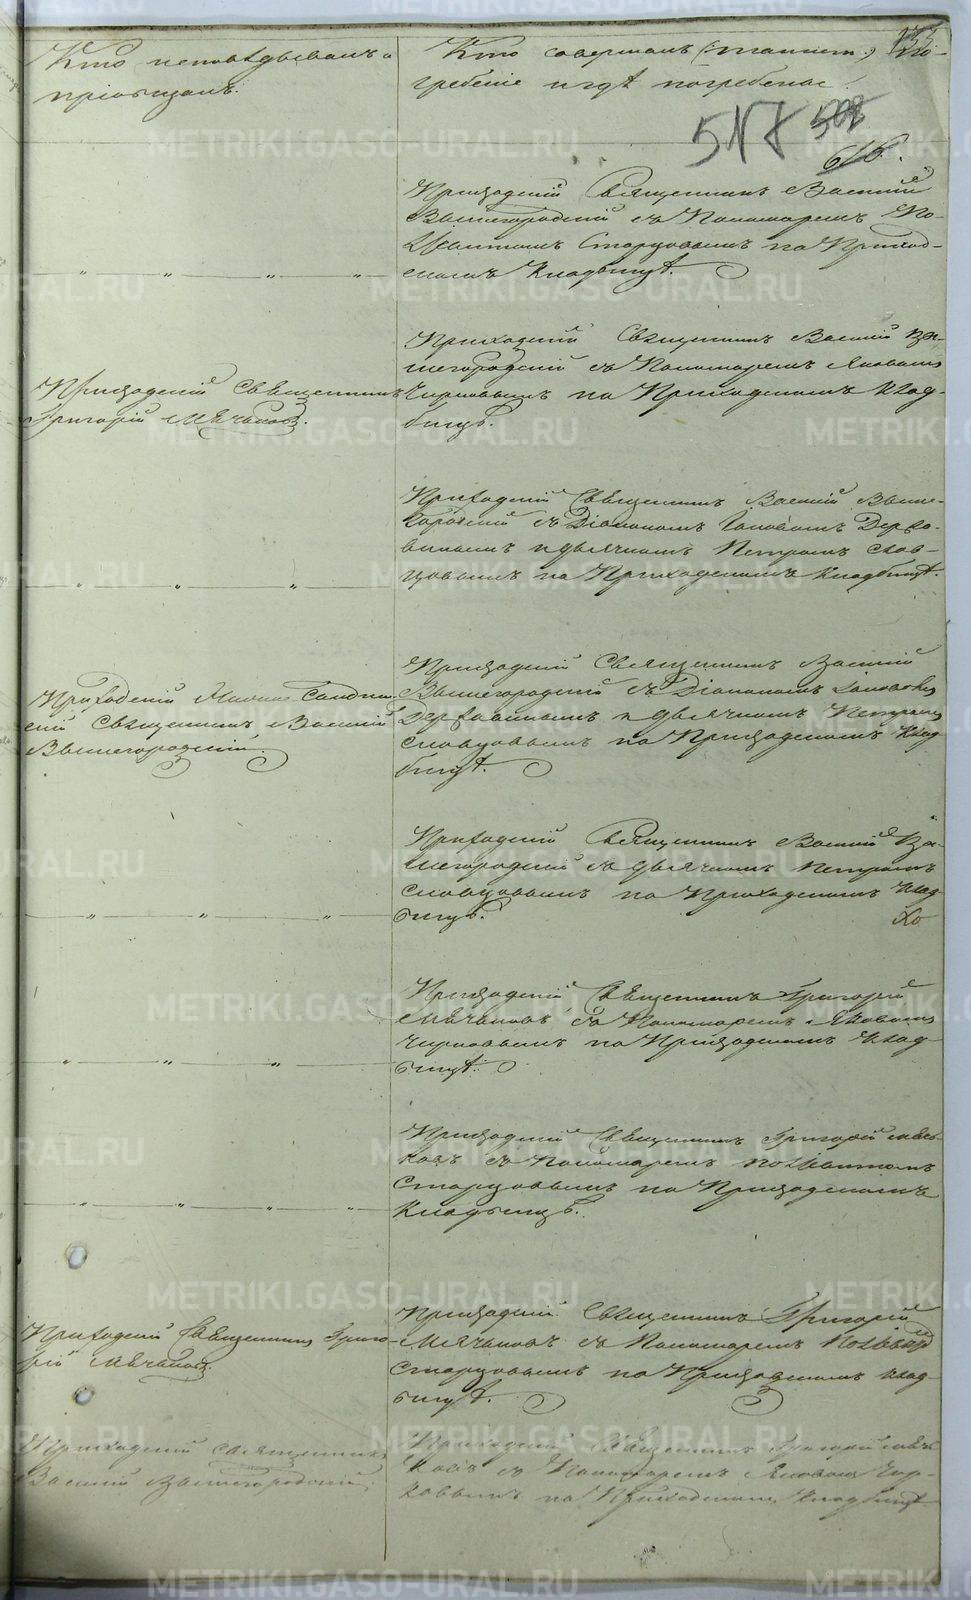 Кто исповѣдывалъ и
пріобщалъ.
Кто совершалъ погребеніе и гдѣ погребены.
517
Приходскій Священникъ Василій
Вышегородскій съ Пономаремъ По-
Старцовымъ на Приход-
скомъ Кладбищѣ.
Приходскій Священникъ
Григорій Мѣчьковъ.
Приходскій Священникъ Василій Вы-
шегородскій съ Пономаремъ Яковомъ
Чирковымъ на Приходскомъ Клад-
бищѣ.
Приходскій Священникъ Василій Выше-
городскій съ Діакономъ Іаковомъ Держа-
винымъ и дьячкомъ Петромъ Слов-
цовымъ на Приходскомъ Кладбищѣ.
Приходскій
Священникъ Василій
Вышегородскій.
Приходскій Священникъ Василій
Вышегородскій съ Діакономъ Іаковомъ
Державинымъ и дьячкомъ Петромъ
Словцовымъ на Приходскомъ Клад-
бищѣ.
Приходскій Священникъ Василій Вы-
шегородскій съ дьячкомъ Петромъ
Словцовымъ на Приходскомъ Клад-
бищѣ.
Приходскій Священникъ Григорій
Мѣчьковъ съ Пономаремъ Яковомъ
Чирковымъ на Приходскомъ Клад-
бищѣ.
Приходскій Священникъ Григорій Мѣчь-
ковъ съ Пономаремъ
Старцовымъ на Приходскомъ
Кладбищѣ.
Приходскій Священникъ Григо-
рій Мѣчьковъ
Приходскій Священникъ Григорій
Мѣчьковъ съ Пономаремъ
Старцовымъ на Приходскомъ Клад-
бищѣ.
Приходскій Священникъ
Василій Вышегородскій.
Приходскій Священникъ Григорій Мѣчь-
ковъ съ Пономаремъ Яковомъ Чир-
ковымъ на Приходскомъ Кладбищѣ
METRIKI.GASO-URAL.RU